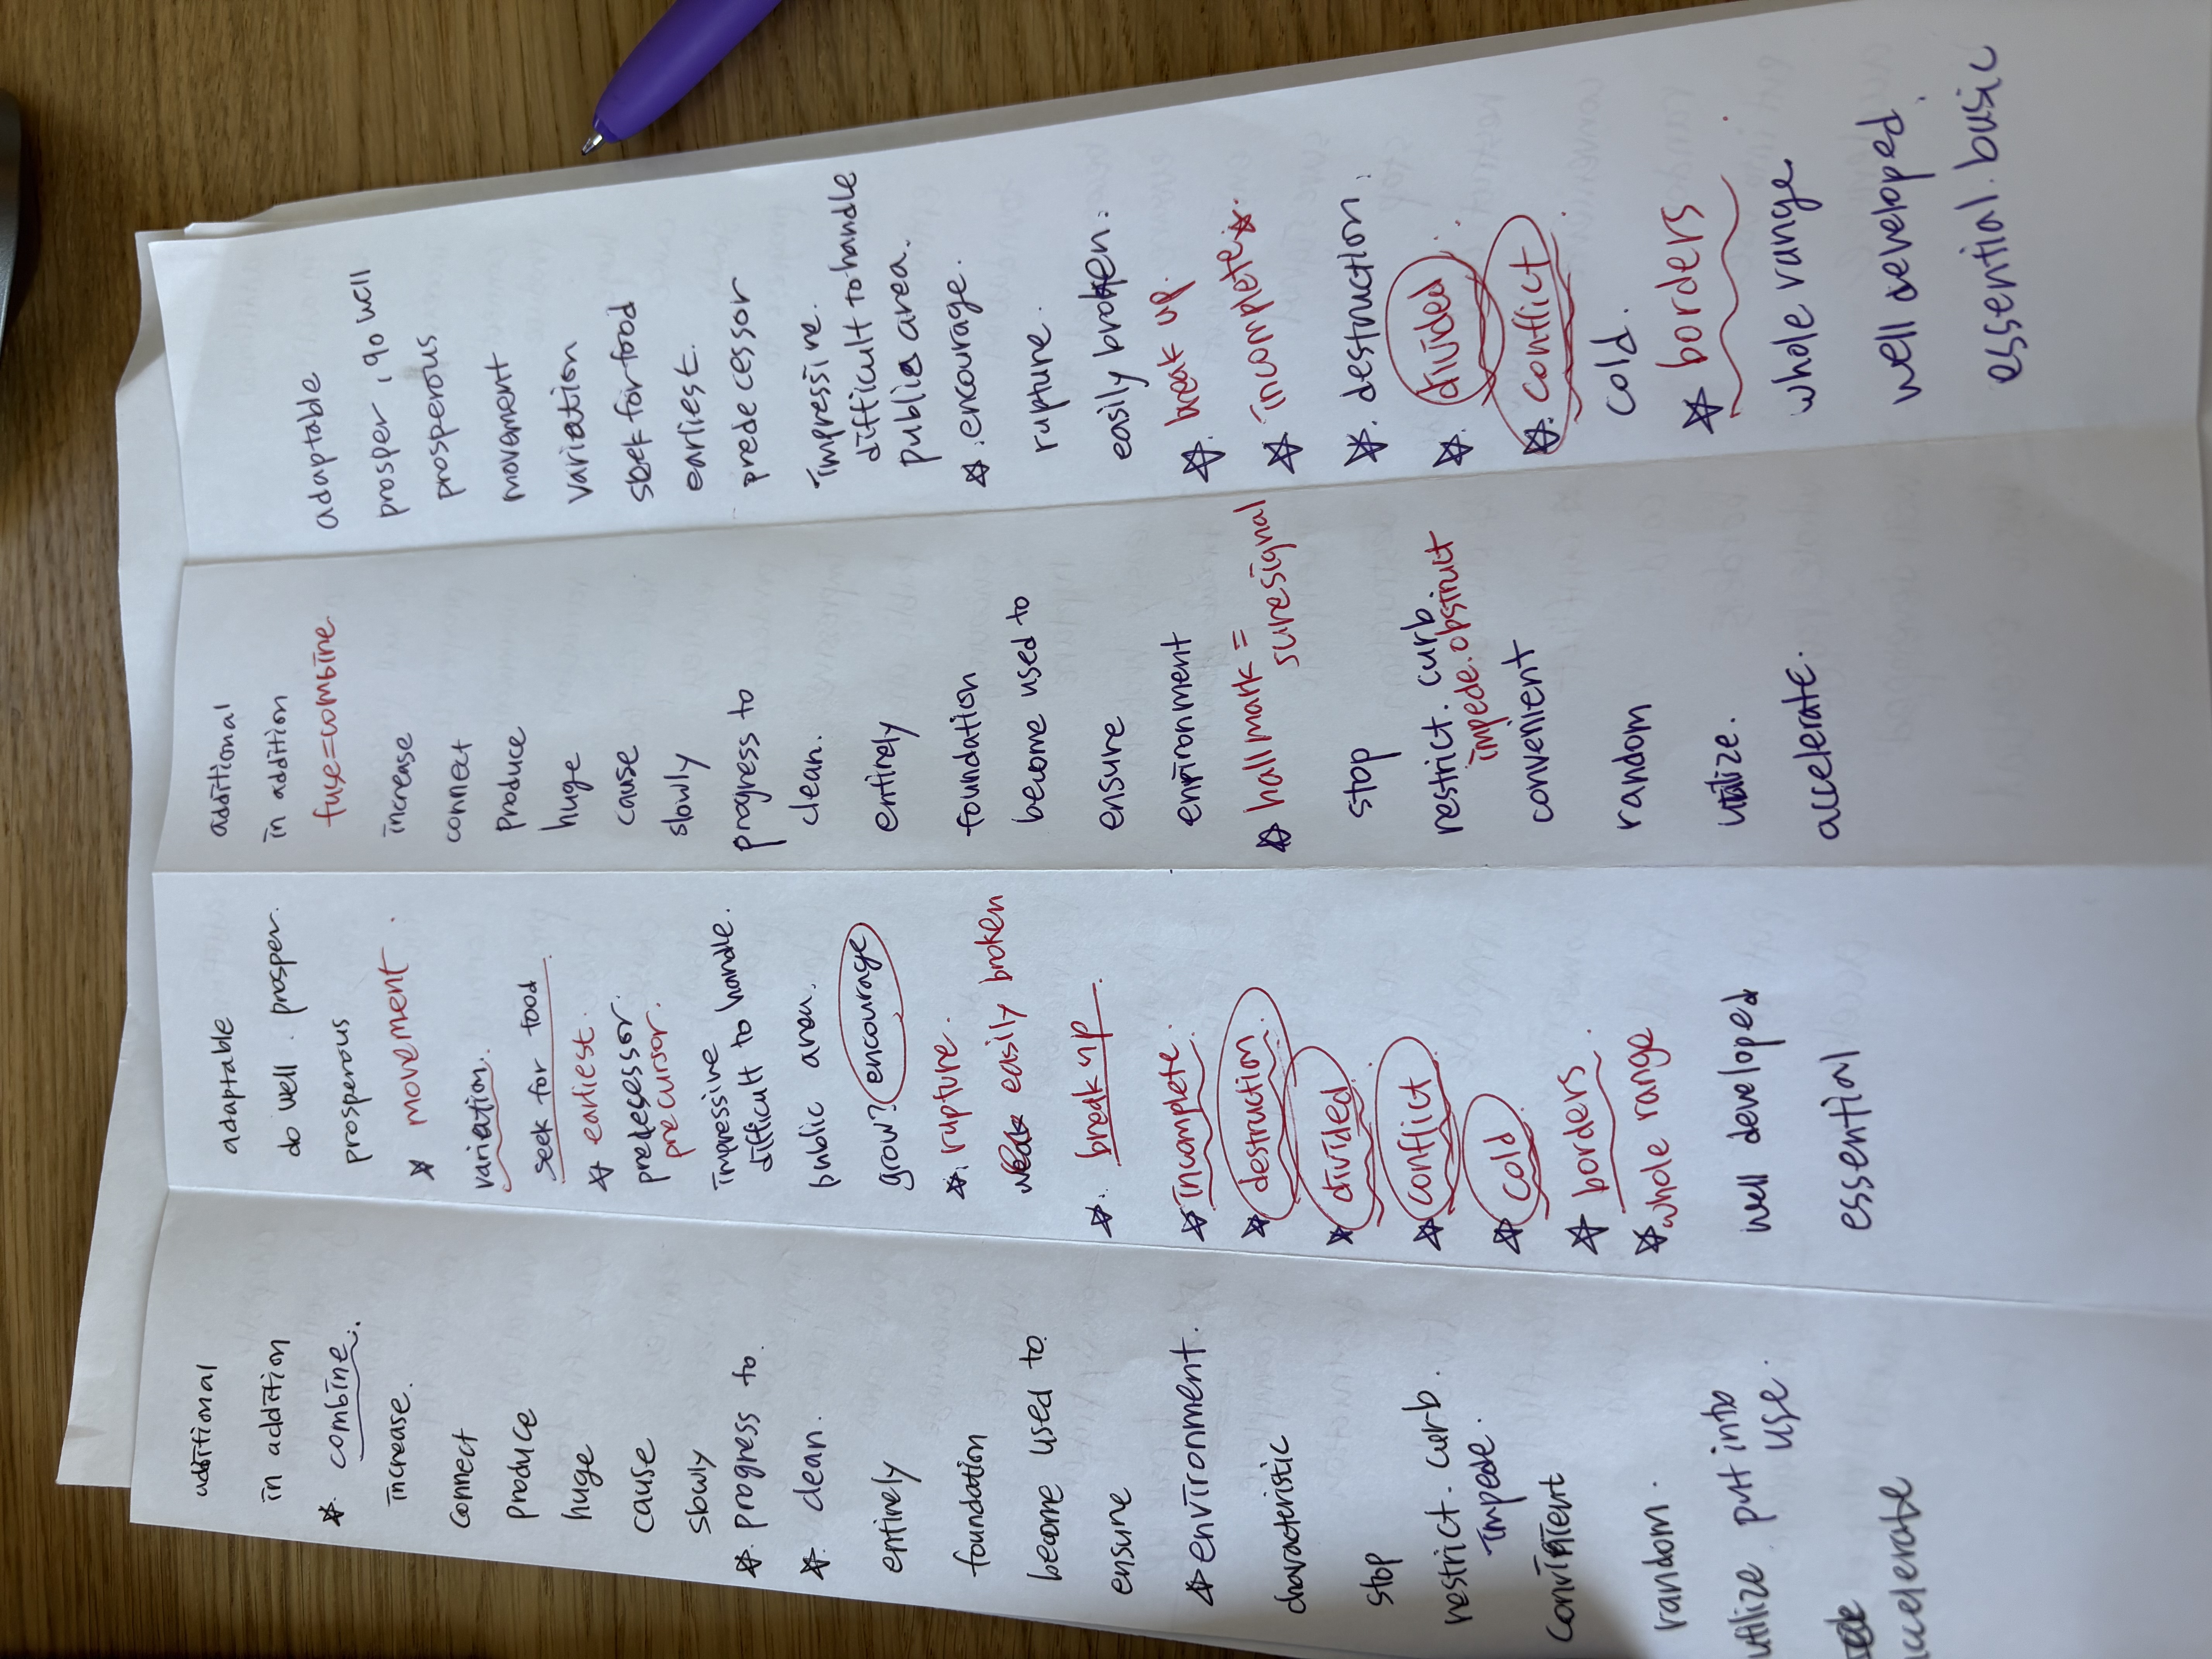 additional
in addition
☆. combine.
increase.
connect
produce
huge
cause
slowly
☆. progress to.
☆. clean.
entirely
foundation
become used to.
ensure
☆ environment.
characteristic
stop
restrict. curb.
impede.
convinient
random.
utilize. put into
use.
accelerate
adaptable
do well. prosper.
prosperous
☆ movement.
variation.
seek for food.
☆ earliest.
predecessor.
precursor.
impressive
difficult to handle.
public area.
grow? encourage
☆. rupture.
weak easily broken
☆. break up.
☆ incomplete.
☆ destruction.
☆ divided.
☆ conflict
☆ cold.
☆ borders.
☆ whole range
well developed
essential
additional
in addition
fuse=combine
increase
connect
produce
huge
cause
slowly
progress to
clean.
entirely
foundation
become used to
ensure
environment
☆ hallmark =
sure signal
stop
restrict. curb.
impede. obstruct
convenient
random
utilize.
accelerate.
adaptable
prosper, go well
prosperous
movement
variation
seek for food
earliest.
predecessor
impressive.
difficult to handle
public area.
☆. encourage.
rupture.
easily broken.
☆. break up.
☆ incomplete☆.
☆. destruction.
☆. divided.
☆. conflict.
cold.
☆ borders.
whole range
well developed.
essential. basic